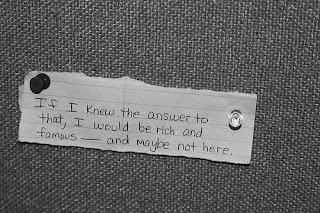 If I knew the answer to
that, I would be rich and
famous — and maybe not here.